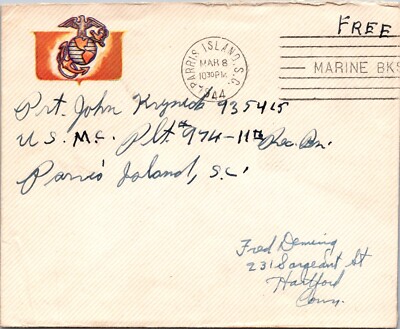 FREE
PARRIS ISLAND, S.C.
MAR 8
1030PM
1944
MARINE BKS
Pvt. John Krynick 935415
U.S.M.C. Plt# 974-11th Rec. Bn.
Parris Island, S.C.
Fred Deming
231 Sargeant St
Hartford
Conn.